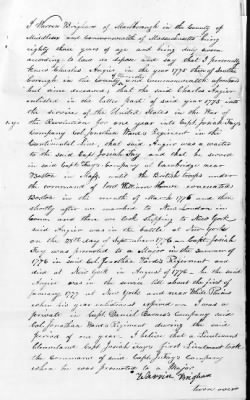 I Warren Brigham of Marlborough in the County of
Middlesex and Commonwealth of Massachusetts being
eighty three years of age and being duly sworn
according to law do depose and say that I personally
knew Charles Angier in the year 1775 then of South
borough in the County and Commonwealth aforesaid
but since deceased, that the said Charles Angier
enlisted in the latter part of said year 1775 into
the service of the United States in the War of
the Revolution for one year into Capt Josiah Fay's
Company Col. Jonathan Ward's Regiment in the
Continental line, that said Angier was a waiter
to the said Capt Josiah Fay and that he served
in said Capt Fay's Company at Cambridge near
Boston in Mass. until the British troops under
the command of Lord William Howe evacuated
Boston in the month of March 1776 and then
shortly after we marched to New London in
Conn. and then we took shipping to New York
said Angier was in the battle at New York
on the of September 1776 Capt Josiah
Fay was promoted to a Major in the summer of
1776 in said Col. Jonathan Ward's Regiment and
died at New York in August of 1776. In the said
Angier was in the service till about the first of
January, 1777 at New York and near White Plains
when his year enlistment expired. I was a
private in Capt Daniel Barnes's Company said
Col. Jonathan Ward's Regiment during the said
period of one year. I believe that a Lieutenant
Cleaveland Capt Josiah Fay's first Lieutenant took
the Command of said Capt J. Fay's Company
when he was promoted to a Major
Warren Brigham
turn over